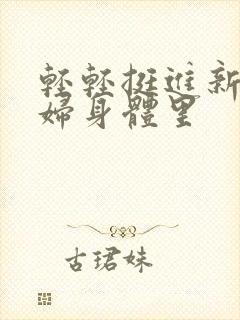 輕輕挺進新
婦身體里
古珺妹